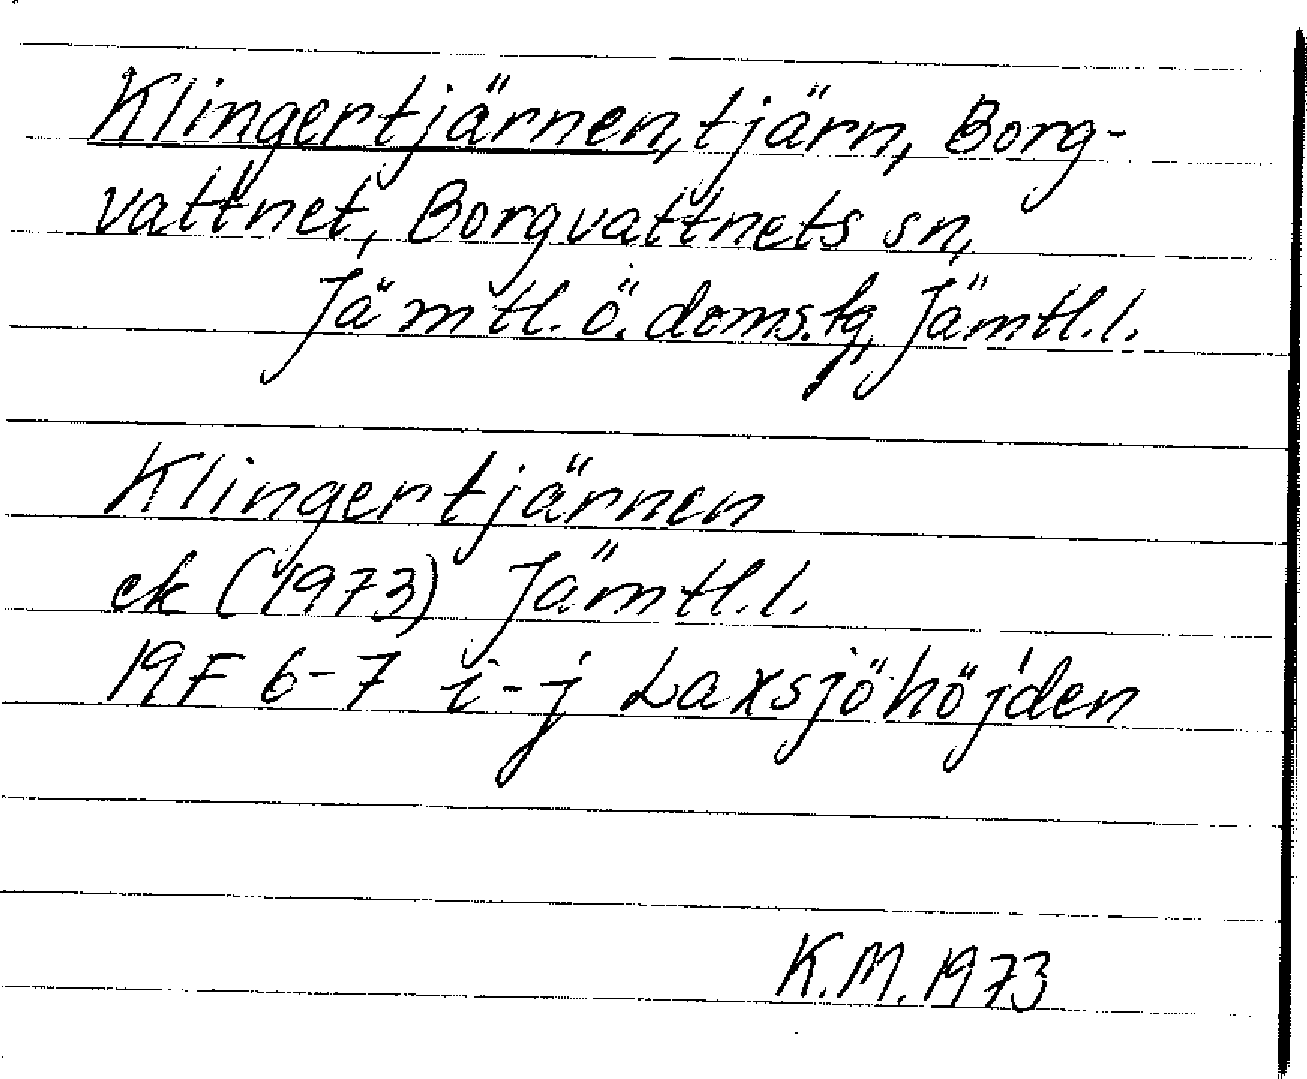 Klingertjärnen, tjärn, Borg-
vattnet, Borgvattnets sn,
Jämtl. ö. doms.fg, Jämtl.l.
Klingertjärnen
ek (1973) Jämtl.l.
19F 6-7 i-j Laxsjöhöjden
K.M. 1973